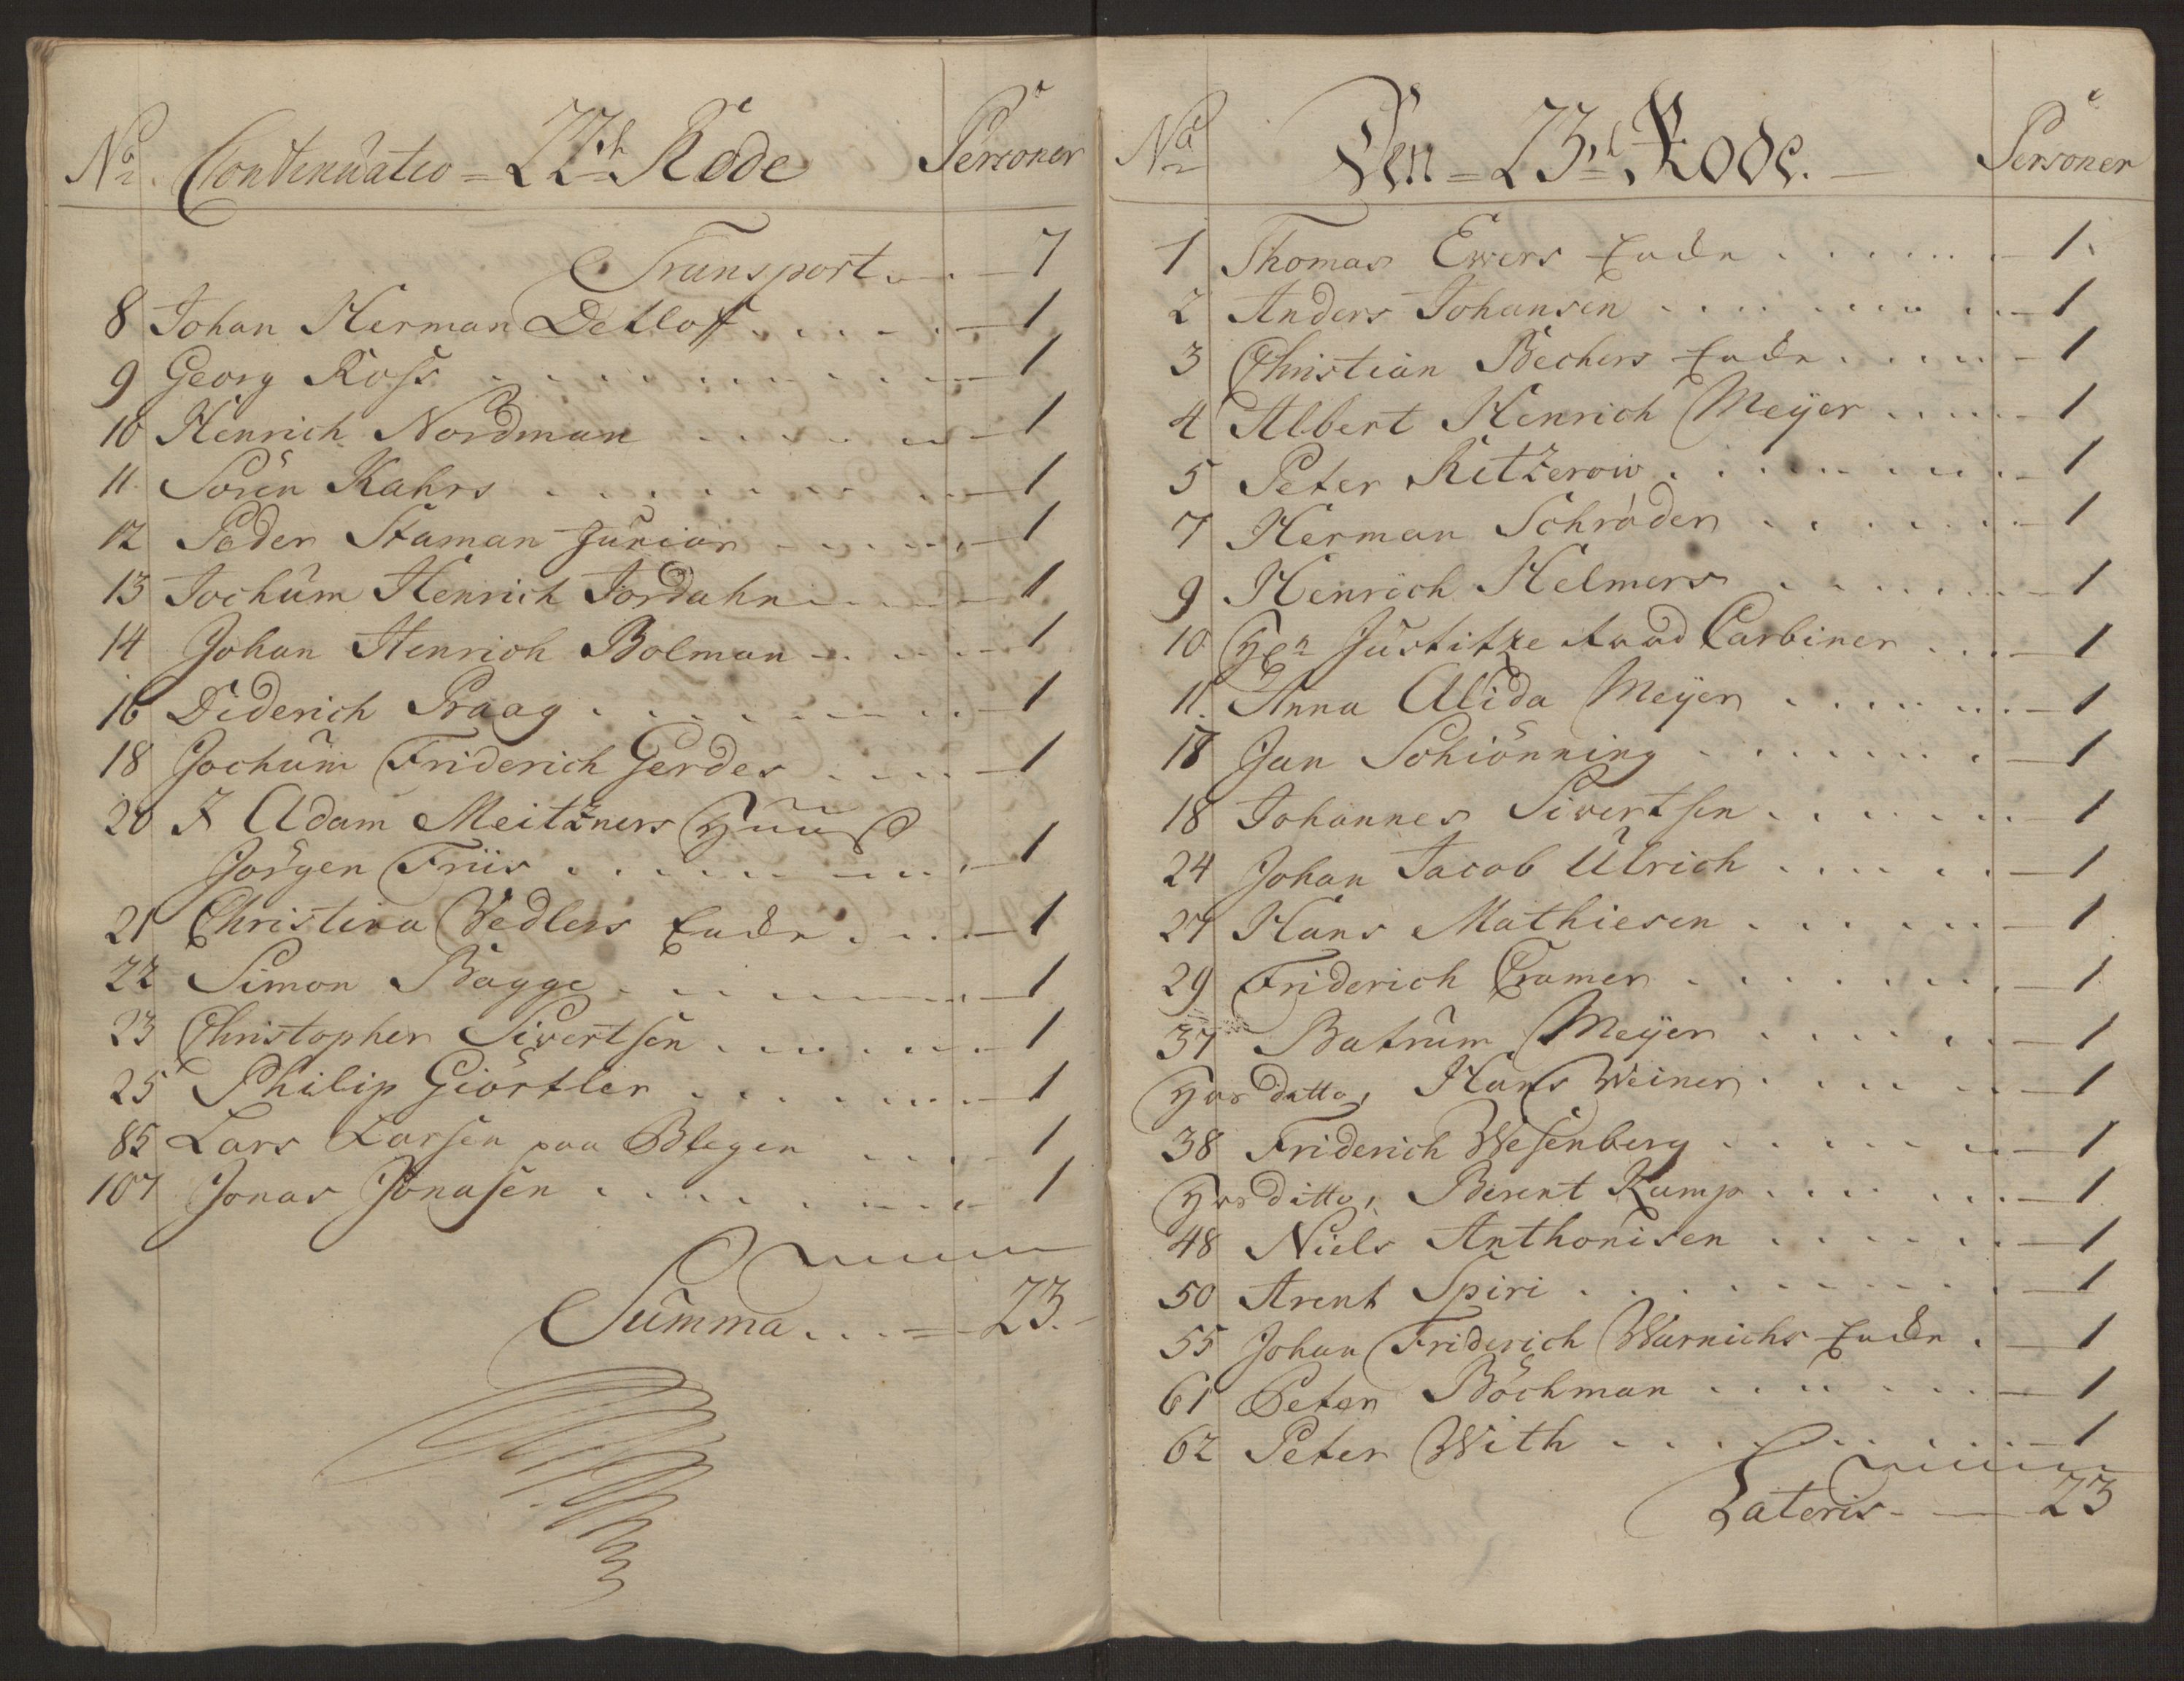 No. Continuatio = 22de Rode Personer
Transport . . . 7
8 Johan Herman Detloff . . . . 1
9 Georg Ross . . . . 1
10 Henrich Nordman . . . . 1
11. Sören Kahrs . . . . 1
12 Peder Staman Junior . . . . 1
13 Jochum Henrich Jordahn . . . . 1
14 Johan Henrich Bolman . . . . 1
16 Diderich Praag . . . . 1
18 Jochum Friderich Gerdes . . . . 1
20 I Adam Meitzners Huus
Jörgen Friis . . . . 1
21 Christina Wedlers Encke . . . . 1
22 Simon Bagge . . . . 1
23 Christopher Sivertsen . . . . 1
25 Philip Giörtler . . . . 1
85 Lars Larsen paa Blegen . . . . 1
107 Jonas Jonasen . . . . 1
Summa . . . = 23.
No. Den = 23de Rode. Personer
1 Thomas Ewers Encke . . . . 1.
2 Anders Johansen . . . . 1
3 Christian Bechers Encke . . . . 1
4 Albert Henrich Meyer . . . . 1
5 Peter Ritzerow . . . . 1
7 Herman Schröder . . . . 1
9 Henrich Helmers . . . . 1
10 Hr Justitze Raad Carbiner . . . 1
11. Anna Alida Meyer . . . . 1
18 Jan Schiönning . . . . 1
18 Johannes Sivertsen . . . . 1
24 Johan Jacob Ulrich . . . . 1
27 Hans Mathiesen . . . . 1
29 Friderich Cramer . . . . 1
37 Batrum Meyer . . . . 1
Hos ditto, Hans Weiner . . . . 1
38 Friderich Wesenberg . . . . 1
Hos ditto, Berent Kamp . . . . 1
48 Niels Anthonisen . . . . 1
50 Arent Spiri . . . . 1
55 Johan Friderich Warnichs Encke . 1
61 Peter Böchman . . . . 1
62 Peter With . . . . 1
Lateris - 23